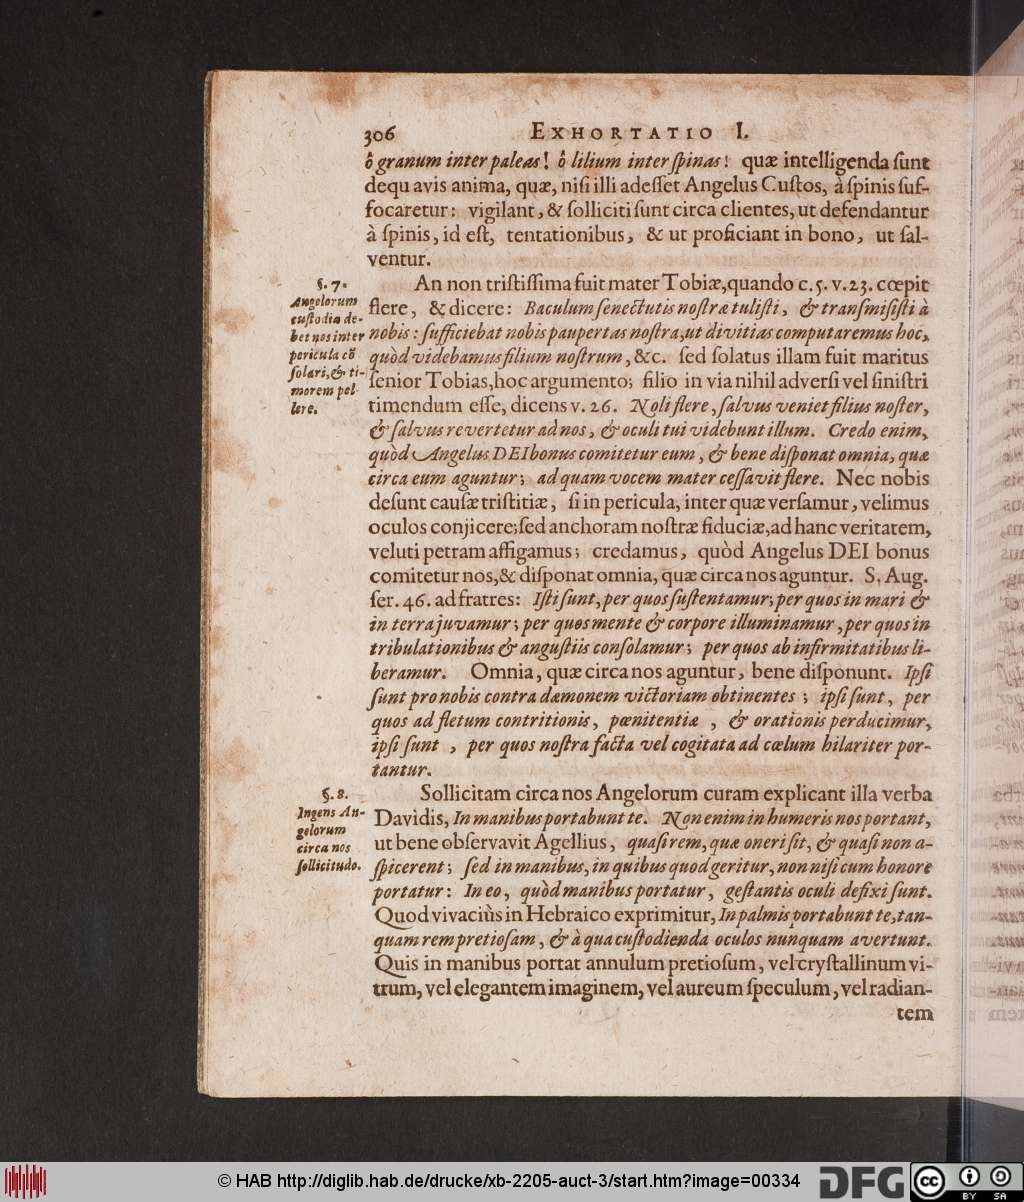 306 EXHORTATIO I.
ô granum inter paleas! ô lilium inter ſpinas! quæ intelligenda ſunt
dequ avis anima, quæ, niſi illi adeſſet Angelus Cuſtos, à ſpinis ſuf-
focaretur: vigilant, & ſolliciti ſunt circa clientes, ut defendantur
à ſpinis, id eſt, tentationibus, & ut proficiant in bono, ut ſal-
ventur.
§. 7.
Angelorum
cuſtodia de-
bet nos inter
pericula cõ
ſolari, & ti-
morem pel-
lere.
An non triſtiſſima fuit mater Tobiæ, quando c. 5. v. 23. cœpit
flere, & dicere: Baculum ſenectutis noſtræ tuliſti, & tranſmiſiſti à
nobis: ſufficiebat nobis paupertas noſtra, ut divitias computaremus hoc,
quòd videbamus filium noſtrum, &c. ſed ſolatus illam fuit maritus
ſenior Tobias, hoc argumento; filio in via nihil adverſi vel ſiniſtri
timendum eſſe, dicens v. 26. Noli flere, ſalvus veniet filius noſter,
& ſalvus revertetur ad nos, & oculi tui videbunt illum. Credo enim,
quòd Angelus DEI bonus comitetur eum, & bene diſponat omnia, quæ
circa eum aguntur; ad quam vocem mater ceſſavit flere. Nec nobis
deſunt cauſæ triſtitiæ, ſi in pericula, inter quæ verſamur, velimus
oculos conjicere; ſed anchoram noſtræ fiduciæ, ad hanc veritatem,
veluti petram affigamus; credamus, quòd Angelus DEI bonus
comitetur nos, & diſponat omnia, quæ circa nos aguntur. S. Aug.
ſer. 46. ad fratres: Iſti ſunt, per quos ſuſtentamur; per quos in mari &
in terra juvamur; per quos mente & corpore illuminamur, per quos in
tribulationibus & anguſtiis conſolamur; per quos ab infirmitatibus li-
beramur. Omnia, quæ circa nos aguntur, bene diſponunt. Ipſi
ſunt pro nobis contra dæmonem victoriam obtinentes; ipſi ſunt, per
quos ad fletum contritionis, pœnitentiæ, & orationis perducimur,
ipſi ſunt, per quos noſtra facta vel cogitata ad cœlum hilariter por-
tantur.
§. 8.
Ingens An-
gelorum
circa nos
ſollicitudo.
Sollicitam circa nos Angelorum curam explicant illa verba
Davidis, In manibus portabunt te. Non enim in humeris nos portant,
ut bene obſervavit Agellius, quaſi rem, quæ oneri ſit, & quaſi non a-
ſpicerent; ſed in manibus, in quibus quod geritur, non niſi cum honore
portatur: In eo, quòd manibus portatur, geſtantis oculi defixi ſunt.
Quod vivaciùs in Hebraico exprimitur, In palmis portabunt te, tan-
quam rem pretioſam, & à qua cuſtodienda oculos nunquam avertunt.
Quis in manibus portat annulum pretioſum, vel cryſtallinum vi-
trum, vel elegantem imaginem, vel aureum ſpeculum, vel radian-
tem
© HAB http://diglib.hab.de/drucke/xb-2205-auct-3/start.htm?image=00334
DFG
cc BY SA